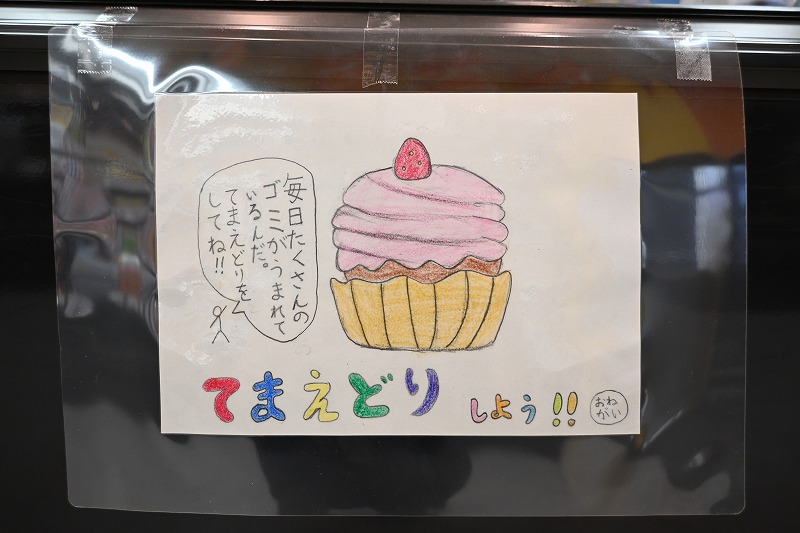 毎日たくさんの
ゴミがうまれて
いるんだ。
てまえどりを
してね!!
てまえどり
しよう!!
おね
がい